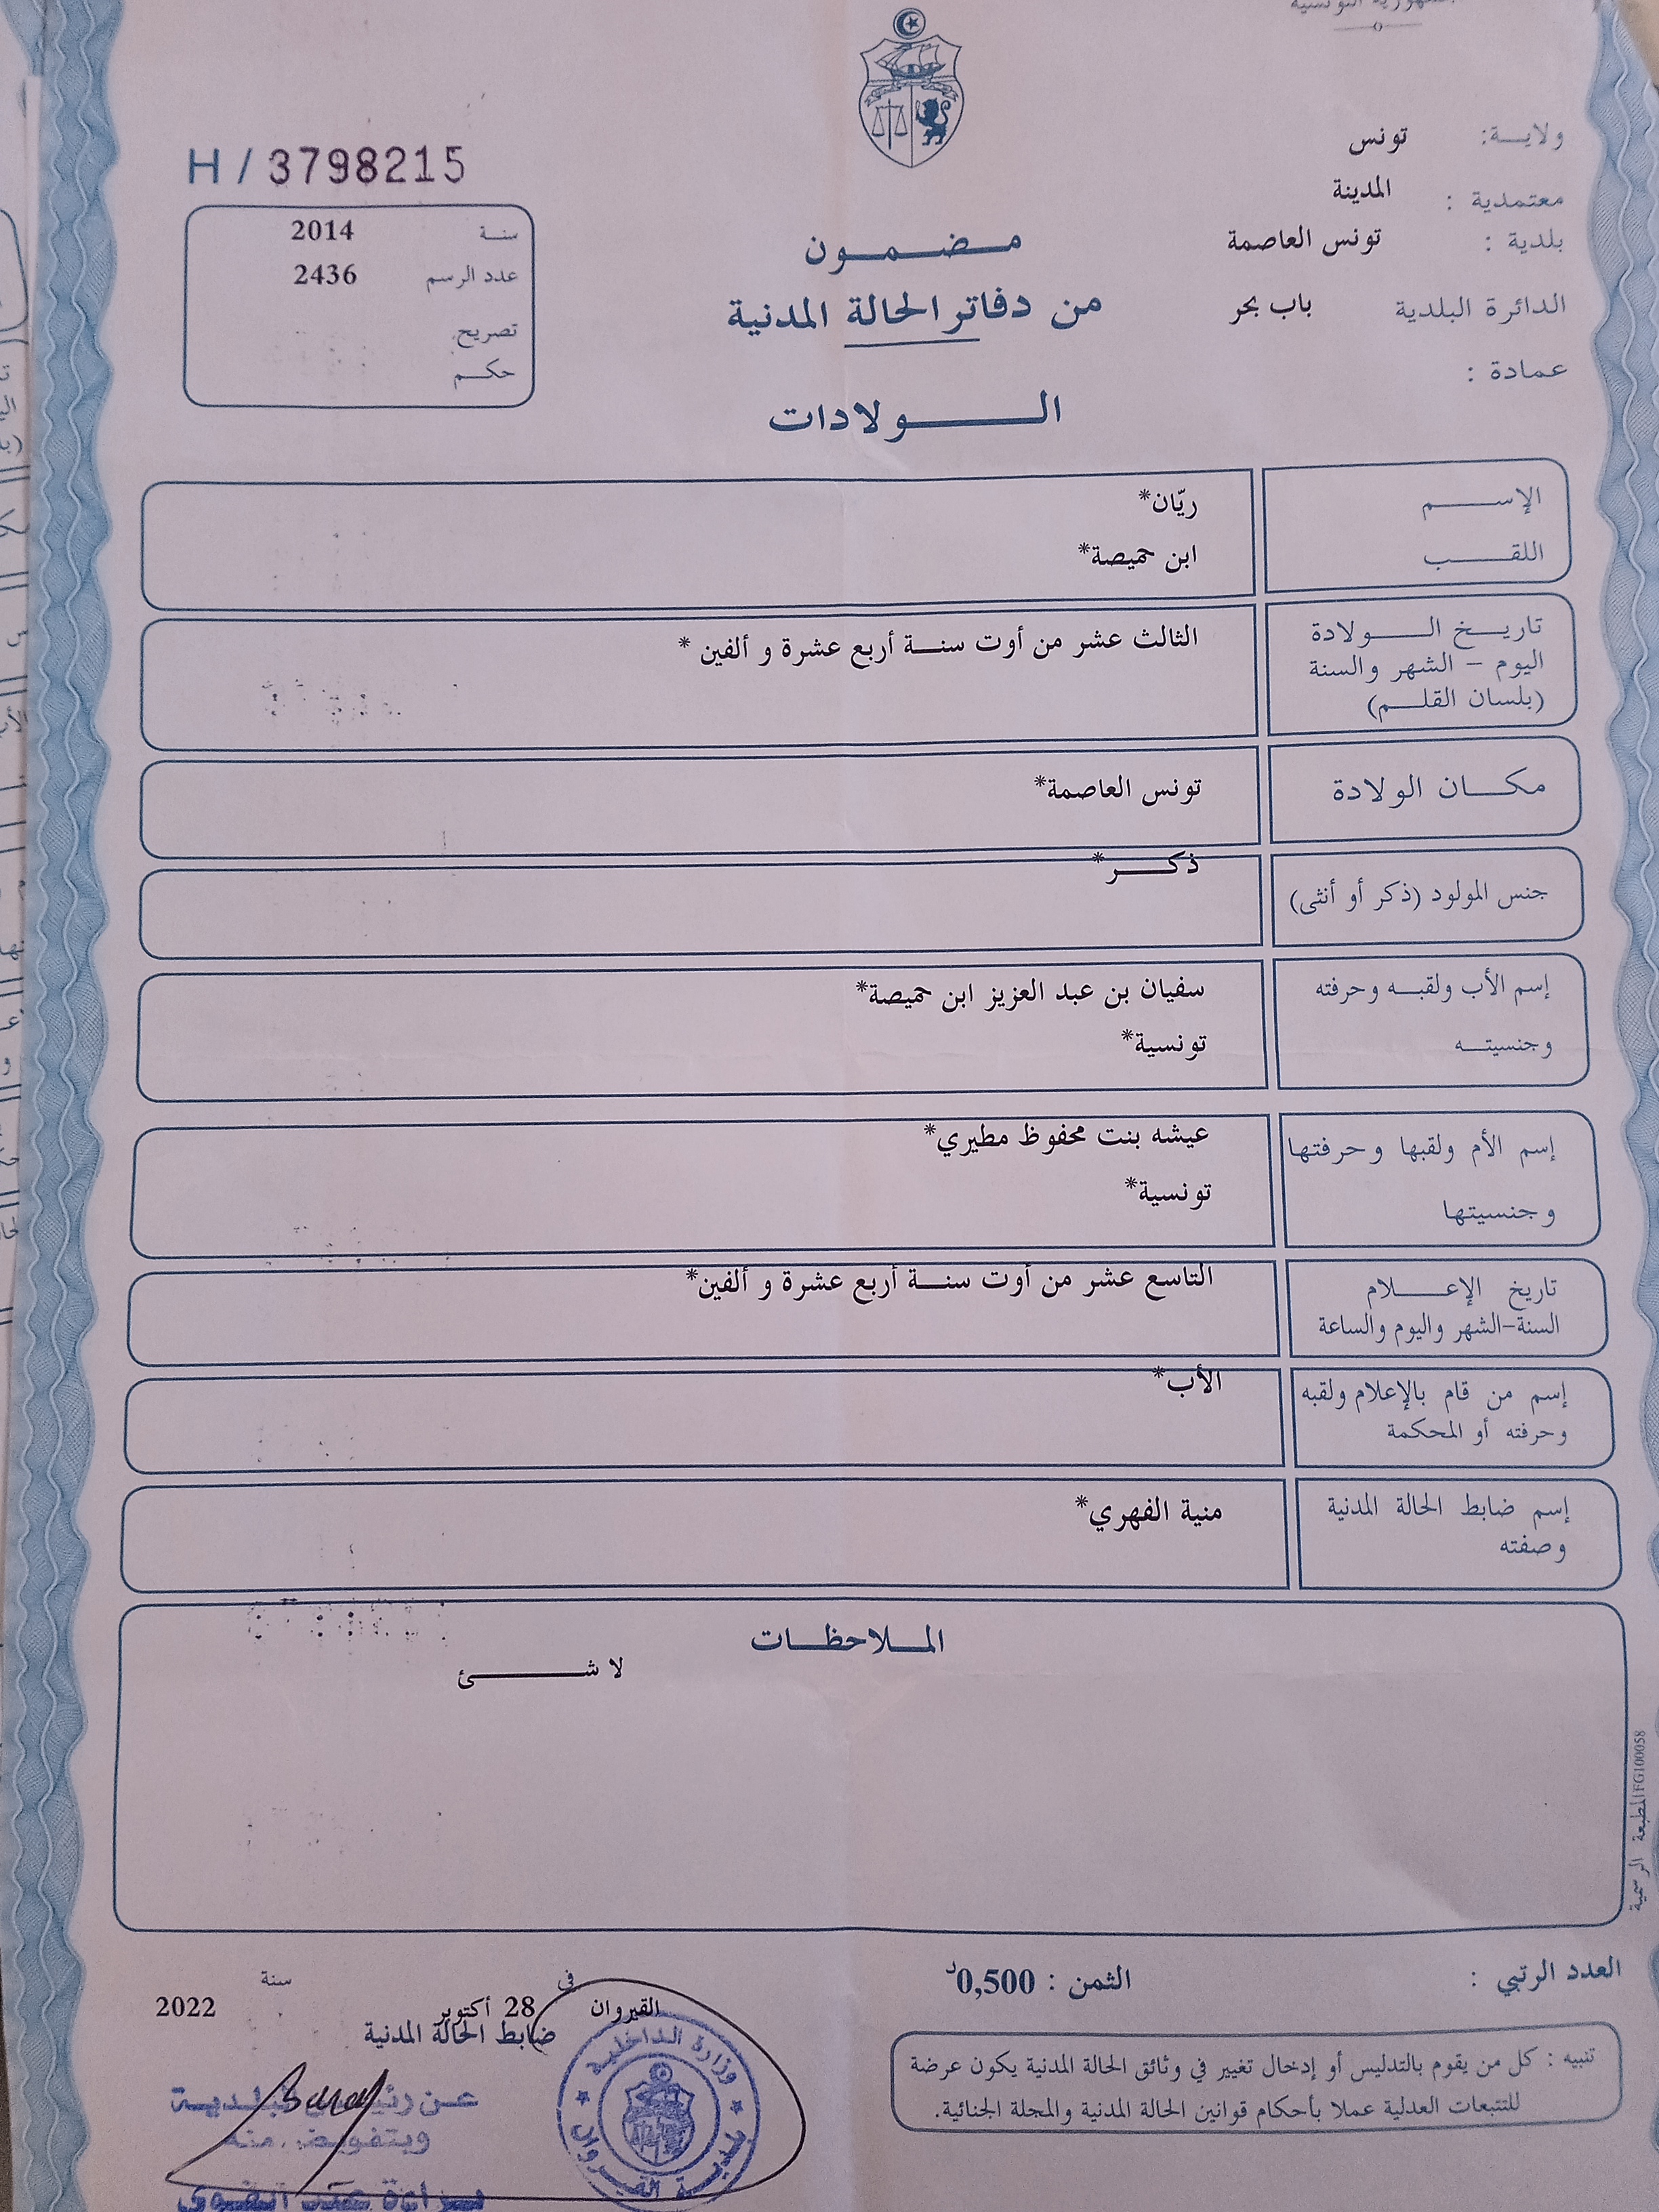 الجمهورية التونسية
ولايـــة: تونس
معتمدية : المدينة
بلدية : تونس العاصمة
الدائرة البلدية باب بحر
عمادة :
H / 3798215
سنـة 2014
عدد الرسم 2436
تصريح
حكـم
مـضـمـون
من دفاتر الحالة المدنية
الـولادات
الإســـم ريّان*
اللقـــب ابن حميصة*
تاريـخ الـــولادة الثالث عشر من أوت سنـة أربع عشرة و ألفين *
اليوم – الشهر والسنة
(بلسان القلـم)
مكـــان الولادة تونس العاصمة*
جنس المولود (ذكر أو أنثى) ذكـــر*
إسم الأب ولقبـه وحرفته سفيان بن عبد العزيز ابن حميصة*
وجنسيتـه تونسية*
إسم الأم ولقبها وحرفتها عيشه بنت محفوظ مطيري*
وجنسيتها تونسية*
تاريخ الإعـــلام التاسع عشر من أوت سنـة أربع عشرة و ألفين*
السنة-الشهر واليوم والساعة
إسم من قام بالإعلام ولقبه الأب*
وحرفته أو المحكمة
إسم ضابط الحالة المدنية منية الفهري*
وصفته
المـلاحظـات
لا شـــئ
المطبعة الرسمية FG100058
العدد الرتبي :
الثمن : 0,500د
في سنة
القيروان 28 أكتوبر 2022
ضابط الحالة المدنية
تنبيه : كل من يقوم بالتدليس أو إدخال تغيير في وثائق الحالة المدنية يكون عرضة
للتتبعات العدلية عملا بأحكام قوانين الحالة المدنية والمجلة الجنائية.
وزارة الداخلية
بلدية القيروان
عـن رئيس البلدية
وبتفويض منه